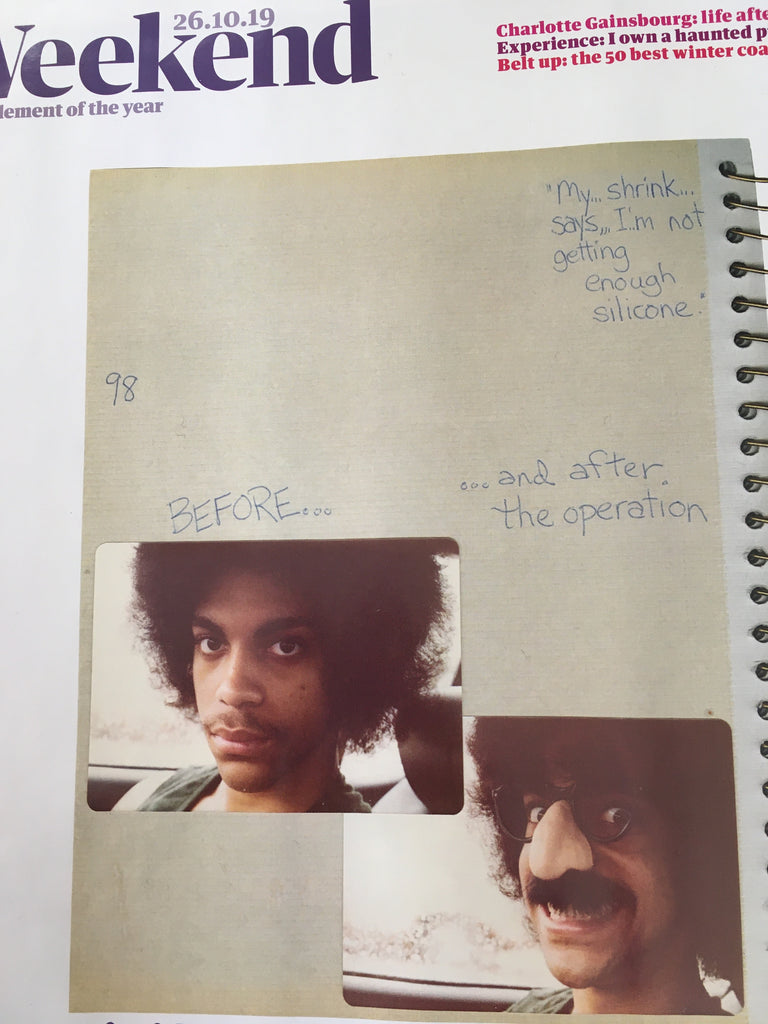 Weekend
26.10.19
lement of the year
Charlotte Gainsbourg: life afte
Experience: I own a haunted p
Belt up: the 50 best winter coa
"My... shrink...
says,,, I..m not
getting
enough
silicone."
98
BEFORE...
...and after.
the operation